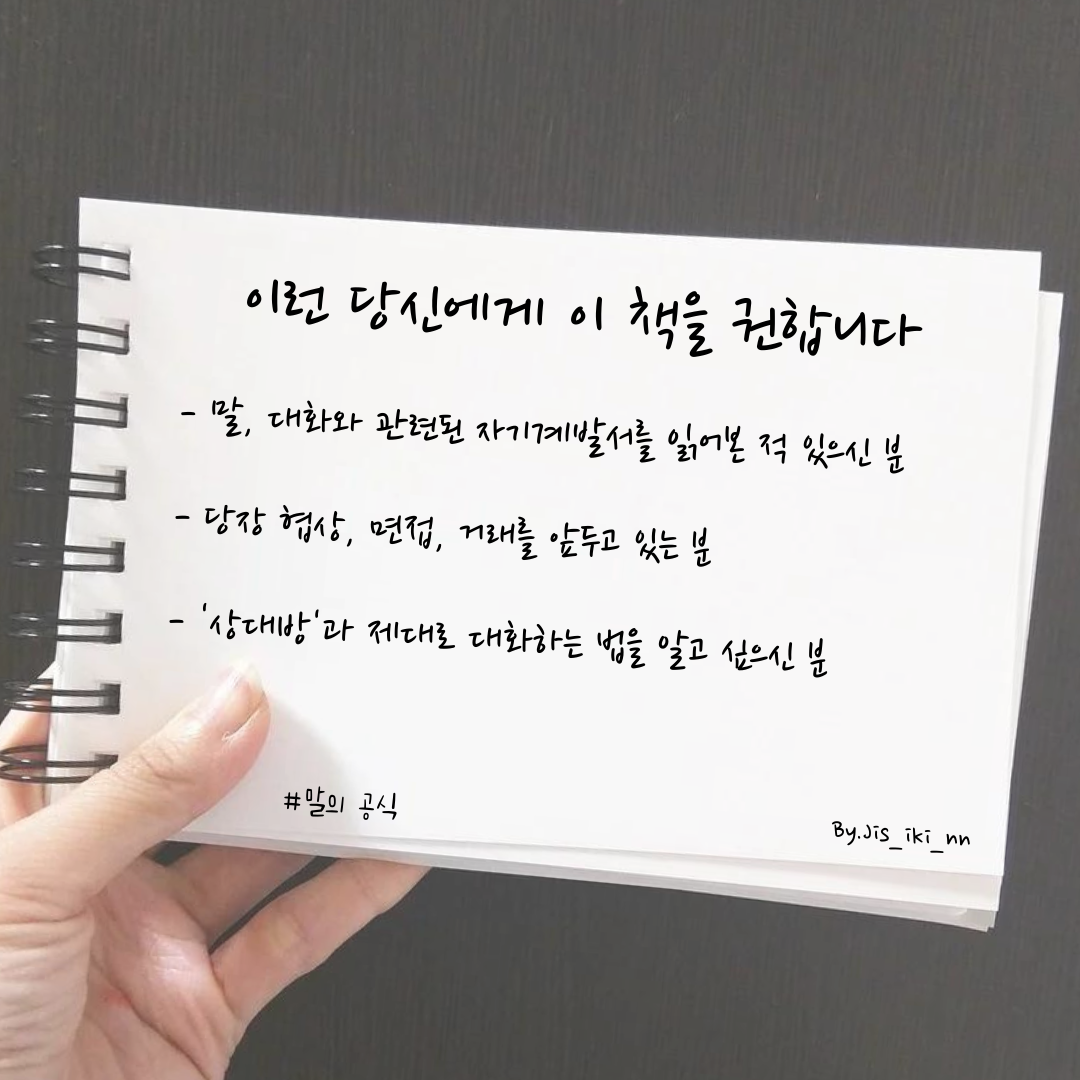 이런 당신에게 이 책을 권합니다
- 말, 대화와 관련된 자기계발서를 읽어본 적 있으신 분
- 당장 협상, 면접, 거래를 앞두고 있는 분
- '상대방'과 제대로 대화하는 법을 알고 싶으신 분
#말의 공식
By.Jis_iki_nn